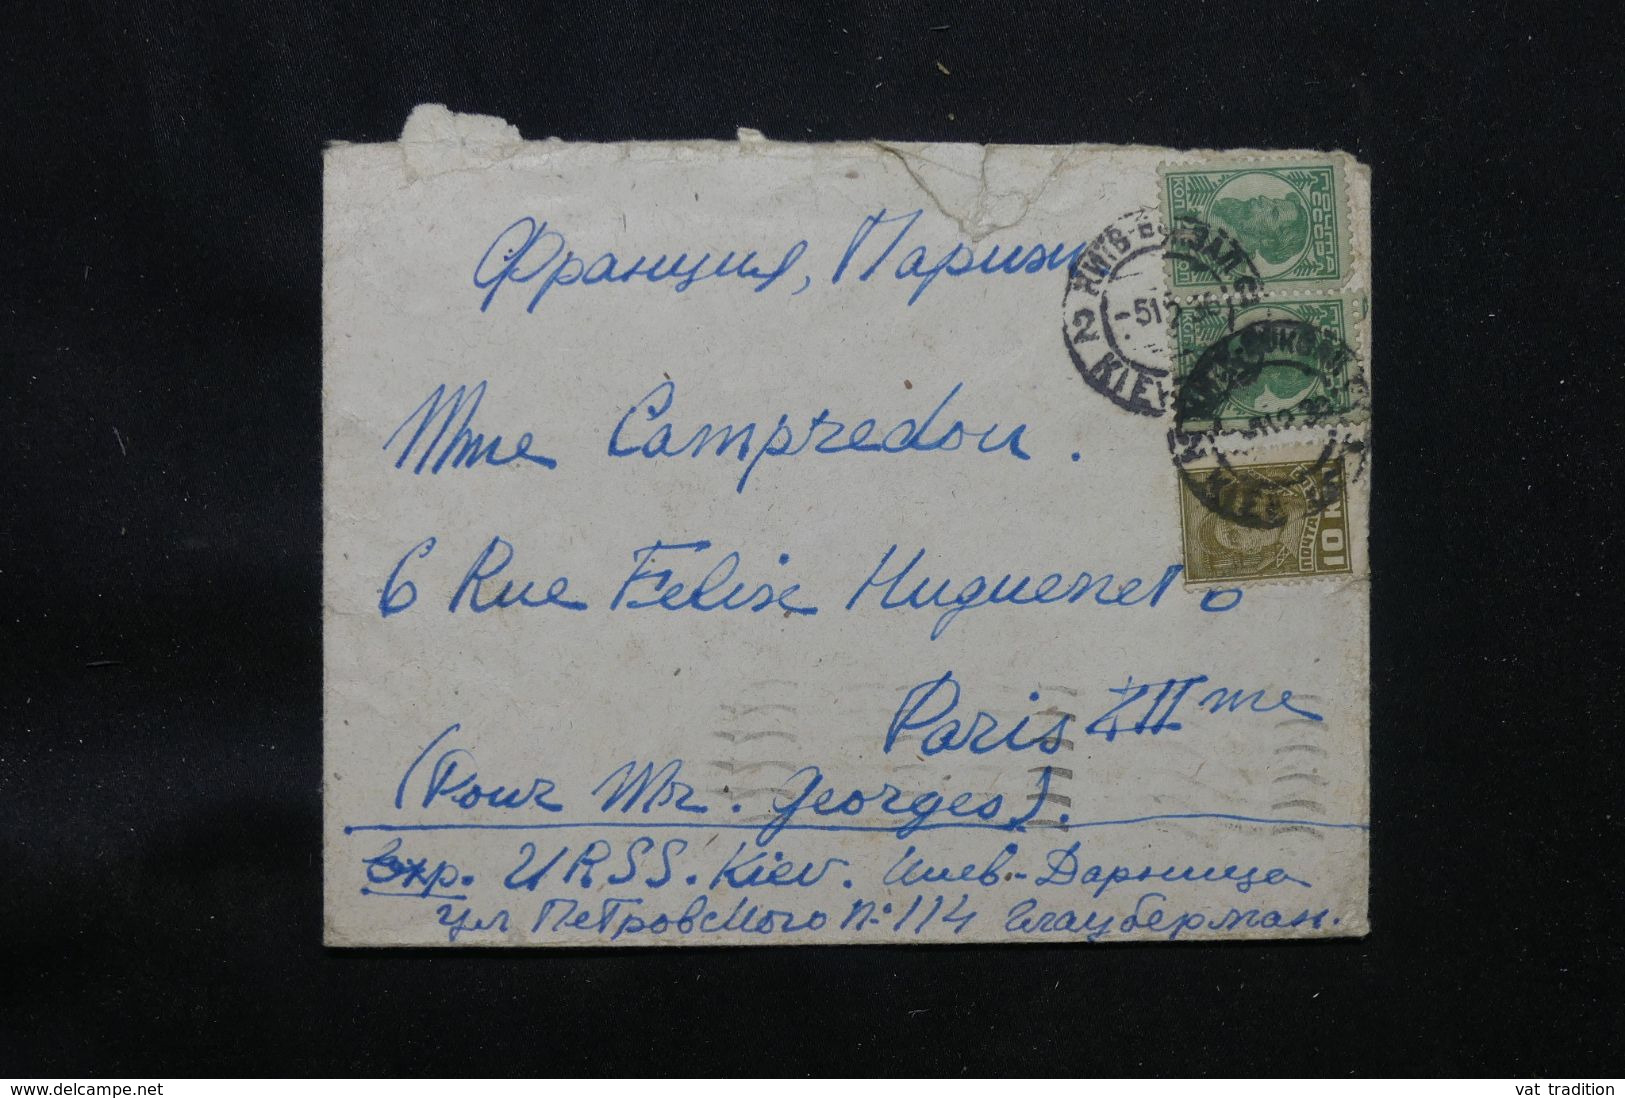 Франция, Париж
Mme Campredon.
6 Rue Felix Huguenet 6
Paris XIIme
(Pour Mr. Georges).
Exp. URSS. Kiev. Киев-Дарница
ул Петровского №114 Глауберман.
КИЇВ-ВОКЗАЛ
2 KIEV
-5 12 36
2 KIEV
ПОЧТА
СССР
КОП
ПОЧТА
10 К
delcampe.net
vat_tradition